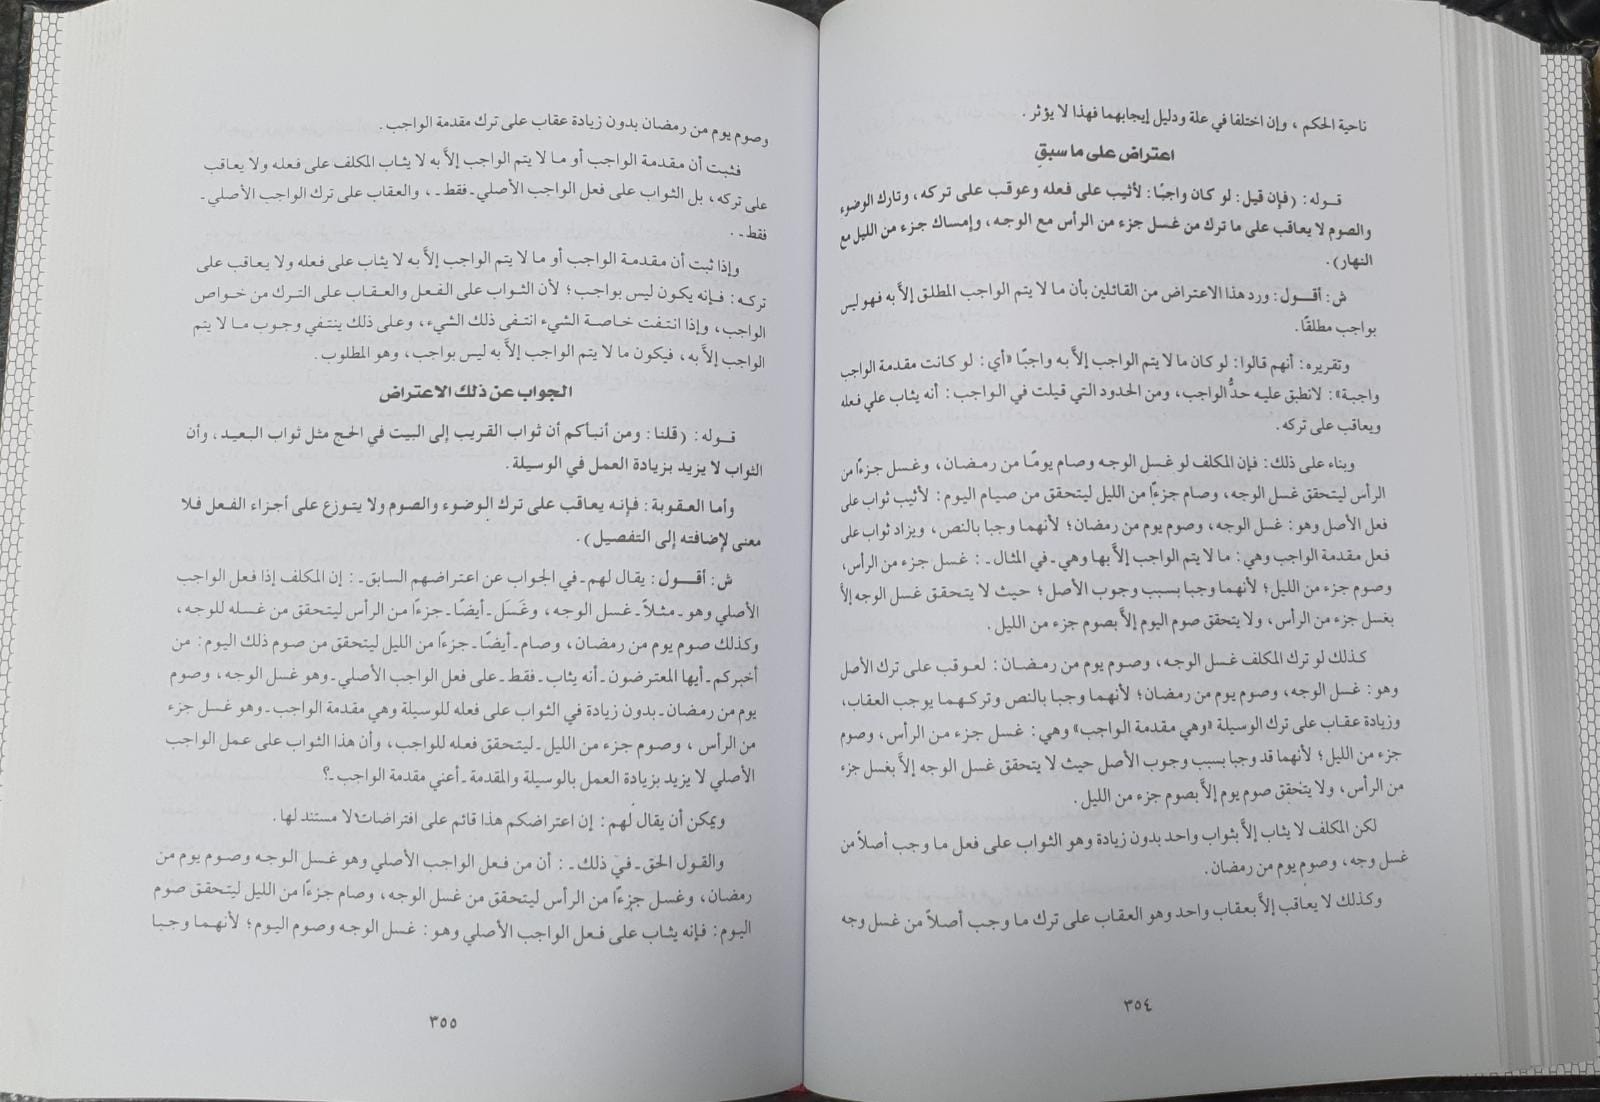 ناحية الحكم ، وإن اختلفا في علة ودليل إيجابهما فهذا لا يؤثر .
اعتراض على ما سبق
قوله : ( فإن قيل : لو كان واجبًا : لأثيب على فعله وعوقب على تركه ، وتارك الوضوء
والصوم لا يعاقب على ما ترك من غسل جزء من الرأس مع الوجه ، وإمساك جزء من الليل مع
النهار ) .
ش : أقول : ورد هذا الاعتراض من القائلين بأن ما لا يتم الواجب المطلق إلاَّ به فهو ليس
بواجب مطلقًا .
وتقريره : أنهم قالوا : لو كان ما لا يتم الواجب إلاَّ به واجبًا «أي : لو كانت مقدمة الواجب
واجبة» : لانطبق عليه حدُّ الواجب ، ومن الحدود التي قيلت في الواجب : أنه يثاب علي فعله
ويعاقب على تركه .
وبناء على ذلك : فإن المكلف لو غسل الوجه وصام يومًا من رمضان ، وغسل جزءًا من
الرأس ليتحقق غسل الوجه ، وصام جزءًا من الليل ليتحقق من صيام اليوم : لأثيب ثواب على
فعل الأصل وهو : غسل الوجه ، وصوم يوم من رمضان ؛ لأنهما وجبا بالنص ، ويزاد ثواب على
فعل مقدمة الواجب وهي : ما لا يتم الواجب إلاَّ بها وهي ـ في المثال ـ : غسل جزء من الرأس ،
وصوم جزء من الليل ؛ لأنهما وجبا بسبب وجوب الأصل ؛ حيث لا يتحقق غسل الوجه إلاَّ
بغسل جزء من الرأس ، ولا يتحقق صوم اليوم إلاَّ بصوم جزء من الليل .
كذلك لو ترك المكلف غسل الوجه ، وصوم يوم من رمضان : لعوقب على ترك الأصل
وهو : غسل الوجه ، وصوم يوم من رمضان ؛ لأنهما وجبا بالنص وتركهما يوجب العقاب ،
وزيادة عقاب على ترك الوسيلة «وهي مقدمة الواجب» وهي : غسل جزء من الرأس ، وصوم
جزء من الليل ؛ لأنهما قد وجبا بسبب وجوب الأصل حيث لا يتحقق غسل الوجه إلاَّ بغسل جزء
من الرأس ، ولا يتحقق صوم يوم إلاَّ بصوم جزء من الليل .
لكن المكلف لا يثاب إلاَّ بثواب واحد بدون زيادة وهو الثواب على فعل ما وجب أصلاً من
غسل وجه ، وصوم يوم من رمضان .
وكذلك لا يعاقب إلاَّ بعقاب واحد وهو العقاب على ترك ما وجب أصلاً من غسل وجه
٣٥٤
وصوم يوم من رمضان بدون زيادة عقاب على ترك مقدمة الواجب .
فثبت أن مقدمة الواجب أو ما لا يتم الواجب إلاَّ به لا يثاب المكلف على فعله ولا يعاقب
على تركه ، بل الثواب على فعل الواجب الأصلي ـ فقط ـ ، والعقاب على ترك الواجب الأصلي ـ
فقط ـ .
وإذا ثبت أن مقدمة الواجب أو ما لا يتم الواجب إلاَّ به لا يثاب على فعله ولا يعاقب على
تركه : فإنه يكون ليس بواجب ؛ لأن الثواب على الفعل والعقاب على الترك من خواص
الواجب ، وإذا انتفت خاصة الشيء انتفى ذلك الشيء ، وعلى ذلك ينتفي وجوب ما لا يتم
الواجب إلاَّ به ، فيكون ما لا يتم الواجب إلاَّ به ليس بواجب ، وهو المطلوب .
الجواب عن ذلك الاعتراض
قوله : ( قلنا : ومن أنبأكم أن ثواب القريب إلى البيت في الحج مثل ثواب البعيد ، وأن
الثواب لا يزيد بزيادة العمل في الوسيلة .
وأما العقوبة : فإنه يعاقب على ترك الوضوء والصوم ولا يتوزع على أجزاء الفعل فلا
معنى لإضافته إلى التفصيل ) .
ش : أقول : يقال لهم ـ في الجواب عن اعتراضهم السابق ـ : إن المكلف إذا فعل الواجب
الأصلي وهو ـ مثلاً ـ غسل الوجه ، وغَسَل ـ أيضًا ـ جزءًا من الرأس ليتحقق من غسله للوجه ،
وكذلك صوم يوم من رمضان ، وصام ـ أيضًا ـ جزءًا من الليل ليتحقق من صوم ذلك اليوم : من
أخبركم ـ أيها المعترضون ـ أنه يثاب ـ فقط ـ على فعل الواجب الأصلي ـ وهو غسل الوجه ، وصوم
يوم من رمضان ـ بدون زيادة في الثواب على فعله للوسيلة وهي مقدمة الواجب ـ وهو غسل جزء
من الرأس ، وصوم جزء من الليل ـ ليتحقق فعله للواجب ، وأن هذا الثواب على عمل الواجب
الأصلي لا يزيد بزيادة العمل بالوسيلة والمقدمة ـ أعني مقدمة الواجب ـ ؟
ويمكن أن يقال لهم : إن اعتراضكم هذا قائم على افتراضات لا مستند لها .
والقول الحق ـ في ذلك ـ : أن من فعل الواجب الأصلي وهو غسل الوجه وصوم يوم من
رمضان ، وغسل جزءًا من الرأس ليتحقق من غسل الوجه ، وصام جزءًا من الليل ليتحقق صوم
اليوم : فإنه يثاب على فعل الواجب الأصلي وهو : غسل الوجه وصوم اليوم ؛ لأنهما وجبا
٣٥٥